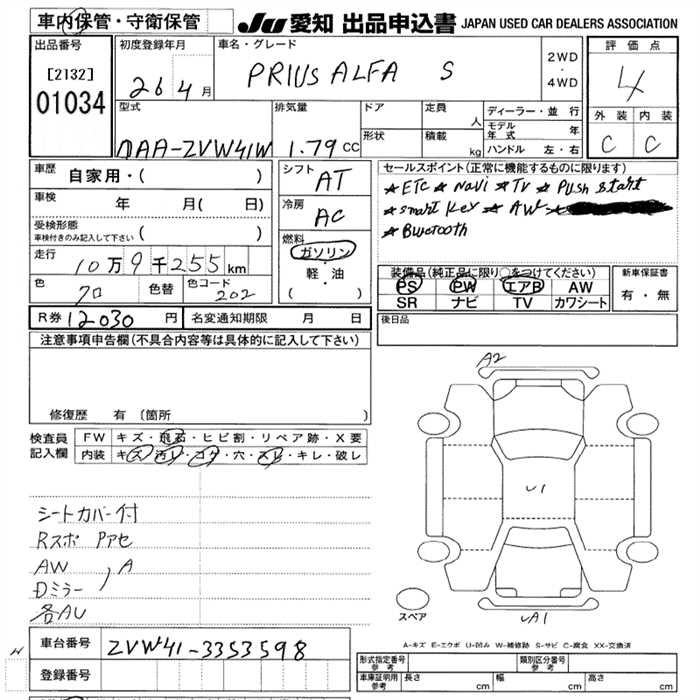 車内保管・守衛保管
JU 愛知 出品申込書 JAPAN USED CAR DEALERS ASSOCIATION
出品番号 初度登録年月 車名・グレード 2WD・4WD 評価点
[2132] 01034 26 4月 PRIUS ALFA S 4
型式 排気量 ドア 定員 人 ディーラー・並行 外装 内装
モデル年式 年
形状 積載 kg ハンドル 左・右
DAA-ZVW41W 1.79cc C C
車歴 自家用・( ) シフト AT セールスポイント(正常に機能するものに限ります)
★ETC ★Navi ★TV ★Push start
車検 年 月( 日) 冷房 AC
★smart Key ★AW
受検形態 車検付きのみ記入して下さい ( )
★Bluetooth
走行 10万9千255km 燃料 ガソリン・軽・油 ( )
装備品(純正品に限り○をつけてください) 新車保証書
PS PW エアB AW 有・無
SR ナビ TV カワシート
色 クロ 色替 色コード 202
R券 12030円 名変通知期限 月 日 後日品
注意事項申告欄(不具合内容等は具体的に記入して下さい)
修復歴 有 [箇所 ]
検査員記入欄 FW キズ・飛石・ヒビ割・リペア跡・X要
内装 キズ・汚レ・コゲ・穴・スレ・キレ・破レ
A2
U1
シートカバー付
Rスポ Pアセ
AW , A
Dミラー
各AU
スペア
UA1
A-キズ E-エクボ U-凹み W-補修跡 S-サビ C-腐食 XX-交換済
車台番号 ZVW41-3353598
登録番号
形式指定番号 参考 類別区分番号 参考
車庫証明用 参考 長さ cm 幅 cm 高さ cm